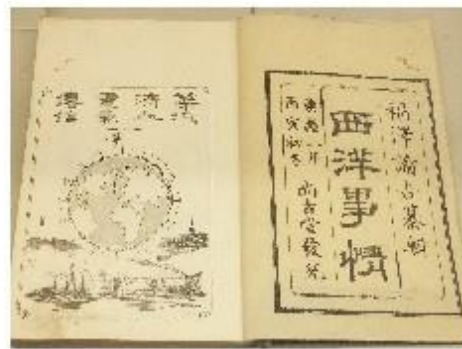 福澤諭吉纂輯
西洋事情
慶應二年
丙寅初冬
尚古堂發兌
濟人
電氣
傳信